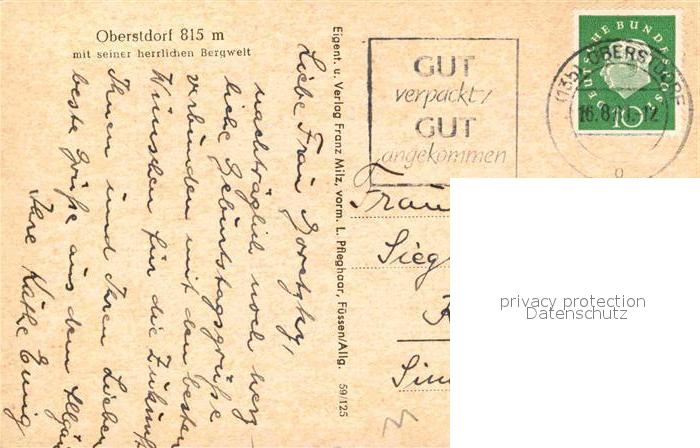 Oberstdorf 815 m
mit seiner herrlichen Bergwelt
Liebe Frau
nachträglich noch herz-
liche Geburtstagsgrüße
verbunden mit den besten
Wünschen für die Zukunft
Ihnen und Ihren Lieben
beste Grüße aus dem Allgäu
Ihre Käthe
Eigent. u. Verlag Franz Milz, vorm. L. Pfleghaar, Füssen/Allg. 59/125
GUT
verpackt/
GUT
angekommen
DEUTSCHE BUNDESPOST
10
(13b) OBERSTDORF
Frau
Sieg
privacy protection
Datenschutz